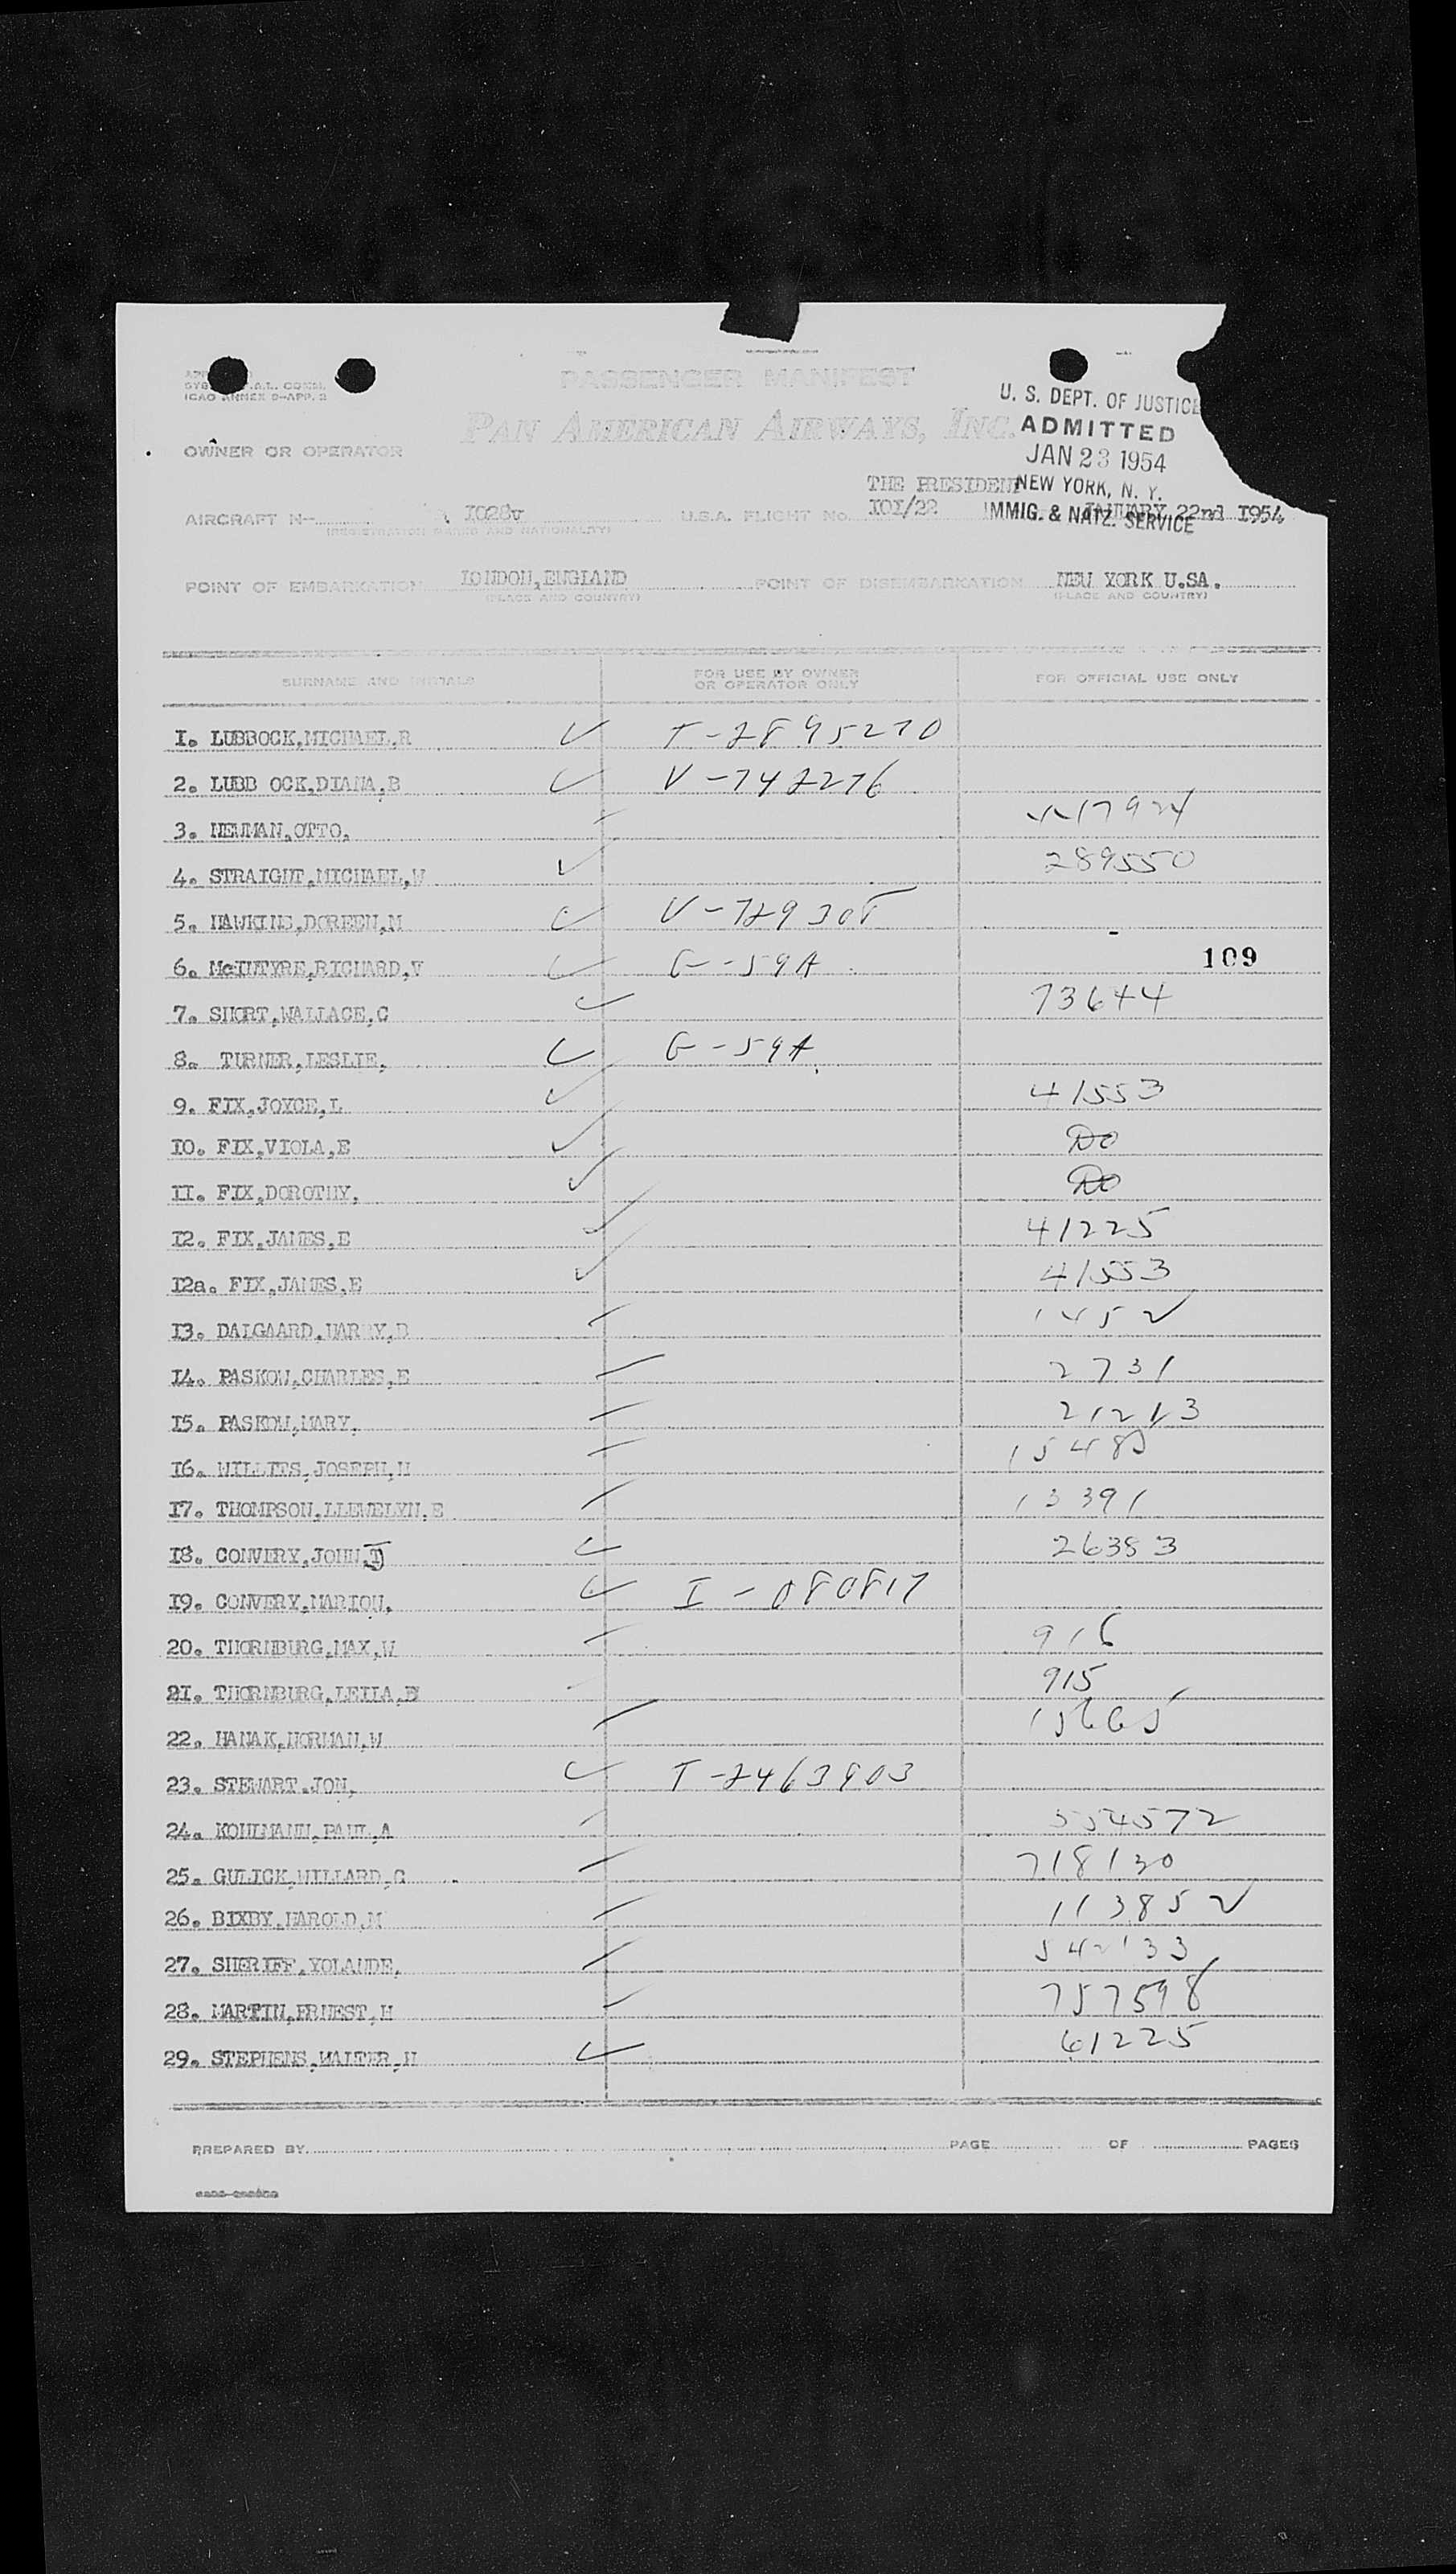 PASSENGER MANIFEST
ICAO ANNEX 9-APP. 2
PAN AMERICAN AIRWAYS, INC.
U. S. DEPT. OF JUSTICE
ADMITTED
JAN 23 1954
NEW YORK, N. Y.
IMMIG. & NATZ. SERVICE
OWNER OR OPERATOR
THE PRESIDENT
AIRCRAFT N- 1028V U.S.A. FLIGHT No. 101/22 JANUARY 22nd 1954
(REGISTRATION MARKS AND NATIONALITY)
POINT OF EMBARKATION LONDON,ENGLAND POINT OF DISEMBARKATION NEW YORK U.SA.
(PLACE AND COUNTRY) (PLACE AND COUNTRY)
SURNAME AND INITIALS FOR USE BY OWNER OR OPERATOR ONLY FOR OFFICIAL USE ONLY
1. LUBBOCK,MICHAEL,R T-2895270
2. LUBB OCK,DIANA,B V-742276
3. NEUMAN,OTTO,
4. STRAIGHT,MICHAEL,W 289550
5. HAWKINS,DOREEN,M V-729308
6. McINTYRE,RICHARD,V G-59A 109
7. SHORT,WALLACE,C 73644
8. TURNER,LESLIE, G-59A
9. FIX,JOYCE,L 41553
10. FIX,VIOLA,E DO
11. FIX,DOROTHY, DO
12. FIX,JAMES,E 41225
12a. FIX,JAMES,E 41553
13. DALGAARD,HARRY,B 1452
14. PASKOW,CHARLES,E 2731
15. PASKOW,MARY, 21213
16. WILLITS,JOSEPH,H
17. THOMPSON,LLEWELYN,E 13391
18. CONVERY,JOHN,J 26383
19. CONVERY,MARION, I-080817
20. THORNBURG,MAX,W 916
21. THORNBURG,LEILA,B 915
22. HANAK,NORMAN,W 15665
23. STEWART.JON, T-2463903
24. KOHLMANN,PAUL,A 554572
25. GULICK,WILLARD,C 718130
26. BIXBY,HAROLD,M 113852
27. SHERIFF,YOLANDE, 542133
28. MARTIN,ERNEST,H 757598
29. STEPHENS,WALTER,H 61225
PREPARED BY PAGE OF PAGES